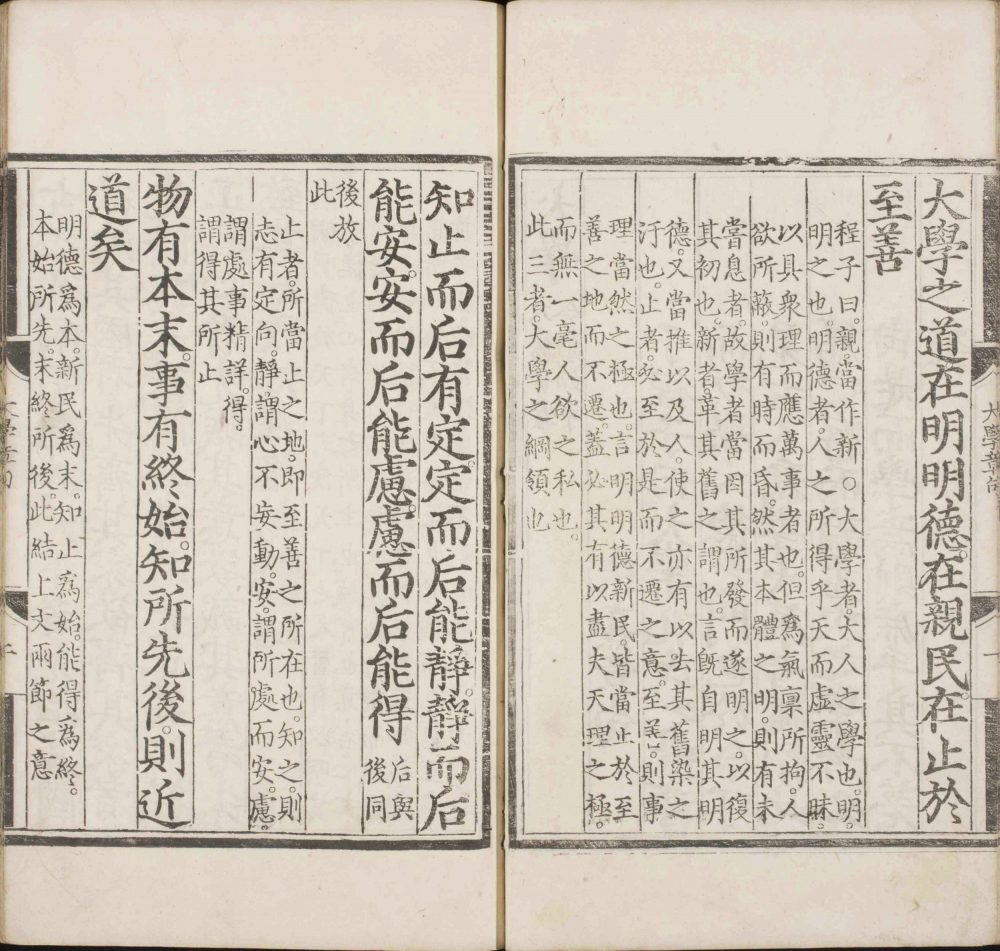 大學之道在明明德。在親民。在止於
至善
程子曰。親。當作新。○大學者。大人之學也。明。
明之也。明德者。人之所得乎天而虛靈不昧。
以具衆理而應萬事者也。但爲氣稟所拘。人
欲所蔽。則有時而昏。然其本體之明。則有未
嘗息者。故學者當因其所發而遂明之。以復
其初也。新者革其舊之謂也。言旣自明其明
德。又當推以及人。使之亦有以去其舊染之
汙也。止者。必至於是而不遷之意。至善。則事
理當然之極也。言明明德新民。皆當止於至
善之地而不遷。蓋必其有以盡夫天理之極。
而無一毫人欲之私也。
此三者。大學之綱領也
大學章句
知止而后有定。定而后能靜。靜而后
能安。安而后能慮。慮而后能得
后與
後同
後放
此
止者。所當止之地。即至善之所在也。知之。則
志有定向。靜。謂心不妄動。安。謂所處而安。慮。
謂處事精詳。得。
謂得其所止
物有本末。事有終始。知所先後。則近
道矣
明德爲本。新民爲末。知止爲始。能得爲終。
本始所先。末終所後。此結上文兩節之意